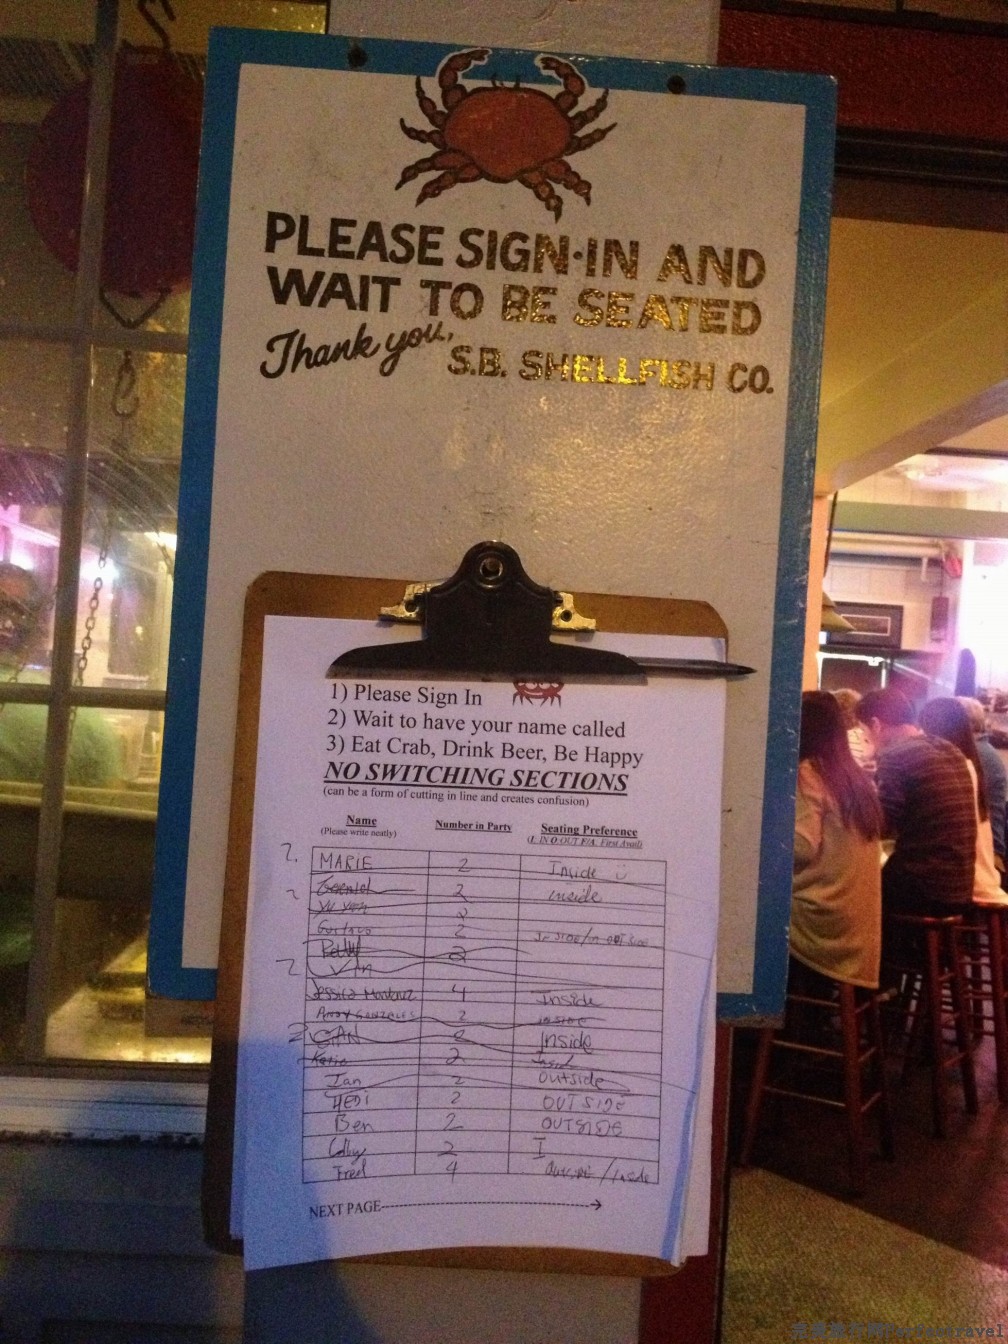 PLEASE SIGN·IN AND
WAIT TO BE SEATED
Thank you,
S.B. SHELLFISH CO.
1) Please Sign In
2) Wait to have your name called
3) Eat Crab, Drink Beer, Be Happy
NO SWITCHING SECTIONS
(can be a form of cutting in line and creates confusion)
Name Number in Party Seating Preference
(Please write neatly) (I: IN O: OUT F/A: First Avail)
MARIE 2 Inside
2 inside
2
Gustavo 2
2
VAN
Jessica Martinez 4 Inside
Andy Gonzales 2 inside
GAN 2 Inside
Katie 2 Inside
Ian 2 Outside
HEDI 2 OUTSIDE
Ben 2 OUTSIDE
Colby 2 I
Fred 4 Outside/Inside
NEXT PAGE